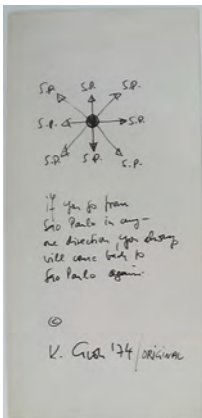 S.P. S.P. S.P.
S.P. S.P.
S.P. S.P. S.P.
if you go from
São Paulo in any-
one direction, you always
will come back to
São Paulo again.
©
K. '74/ORIGINAL